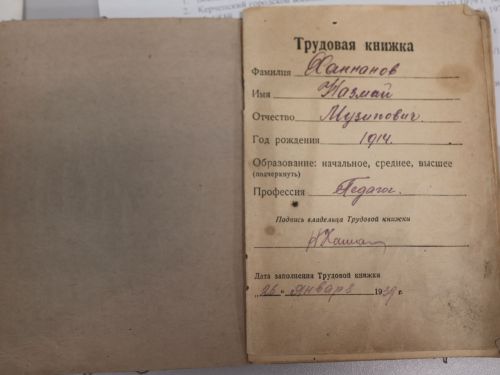 Керченский городской
Трудовая книжка
Фамилия Ханнанов
Имя Назмай
Отчество Музипович.
Год рождения 1914.
Образование: начальное, среднее, высшее
(подчеркнуть)
Профессия Педагог.
Подпись владельца Трудовой книжки
Дата заполнения Трудовой книжки
„26" января 1939 г.